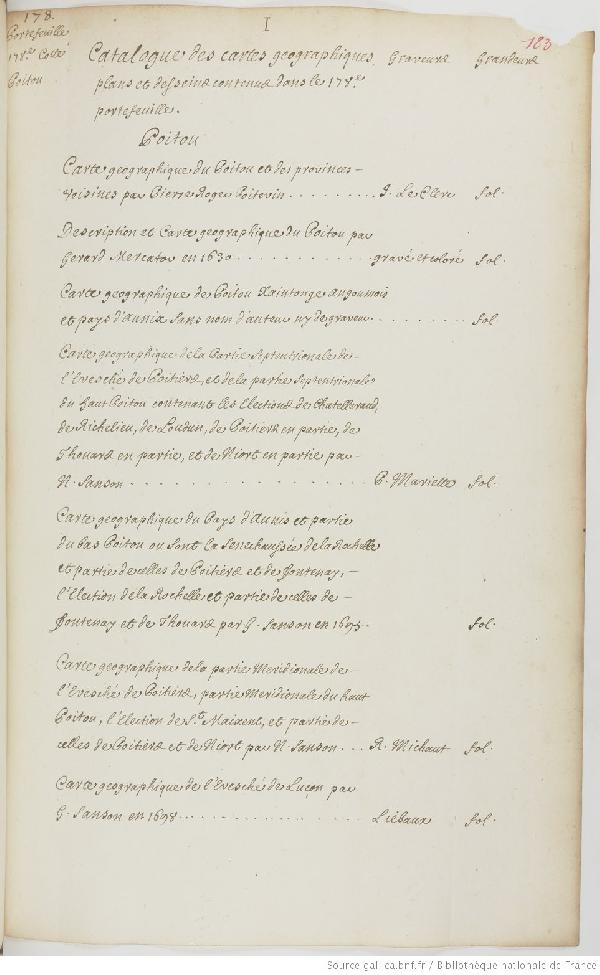 178.
I
183
Portefeuille
178.e Cotté
Poitou
Catalogue des cartes geographiques, Graveurs Grandeurs
plans et desseins contenus dans le 178.e
portefeuille.
Poitou
Carte geographique du Poitou et des provinces
voisines par Pierre Roger Poitevin . . . . . . . . . J. Le Clerc fol.
Description et Carte geographique du Poitou par
Gerard Mercator en 1630 . . . . . . . . . . . gravé et coloré fol.
Carte geographique de Poitou Xaintonge angoumois
et pays d'aunix sans nom d'auteur ny de graveur . . . . . . . . fol
Carte geographique de la Partie Septentrionale de
l'Evesché de Poitiers, et de la partie Septentrionale
du haut Poitou contenant les Elections de Chatelleraud,
de Richelieu, de Loudun, de Poitiers en partie, de
Thouars en partie, et de Niort en partie par
N. Sanson . . . . . . . . . . . . . . . . P. Mariette fol.
Carte geographique du Pays d'Aunis et partie
du bas Poitou ou sont la Senechaussée de la Rochelle
et partie de celles de Poitiers et de fontenay, –
l'Election de la Rochelle et partie de celles de –
fontenay et de Thouars par G. Sanson en 1695. fol.
Carte geographique de la partie Meridionale de
l'Evesché de Poitiers, partie Meridionale du haut
Poitou, l'Election de St. Maixent, et partie de –
celles de Poitiers et de Niort par N. Sanson . . . R. Michaut fol.
Carte geographique de l'Evesché de Luçon par
G. Sanson en 1698 . . . . . . . . . . . . Liébaux fol.
Source gallica.bnf.fr / Bibliothèque nationale de France